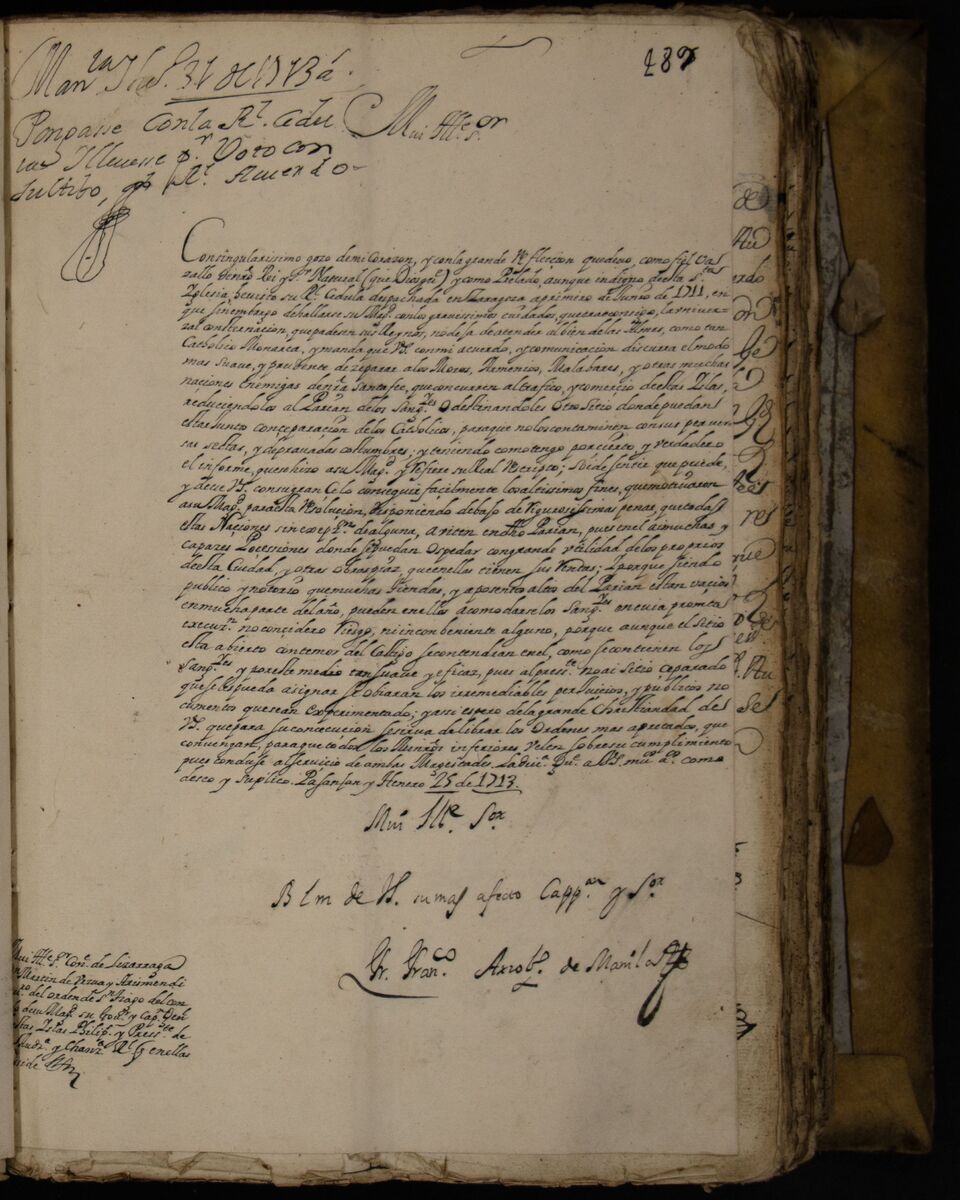 487
Man.la 31 de 1713 á.
Pongasse con la Rl. Cedu
la, y llevesse pr. Voto con
sultibo, al Rl. Acuerdo
Mui Illе. Sor
Con singularissimo gozo de mi Corazon, y con la grande Reflección que devo, como fiel Va
zallo de nro Rei y Sr. Natural (que Dios gue.) y como Prelado, aunque indigno de esta Sta.
Yglesia, he visto su Rl. Cedula despachada en Zaragoza a primero de Junio de 1711, en
que sin embargo de hallarse su Magd. con los gravissimos cuidados, que trae consigo, la univer
zal consternacion, que padesen sus Reynos, no desa de atender al bien de las Almas, como tan
Catholico Monarca, y manda que VS. con mi acuerdo, y comunicacion discurra el modo
mas suave, y prudente de zeparar a los Moros, Armenios, Malabares, y otras muchas
naciones enemigas de nra santa fee, que concurren al trafico, y comercio de estas Yslas,
reduciendolos al Parian de los Sangleyes o destinandoles otro Sitio donde puedan
estar junto con ceparacion de los Catholicos, para que no los contaminen con sus perver
sas sectas, y depravadas costumbres; y teniendo como tengo por cierto, y verdadero
el informe, que se hizo a su Magd. y refiere su Real Rescripto; he de sentir que puede,
y deve VS. con su gran Celo conseguir facilmente los altissimos fines, que motivaron
a su Magd. para esta Resolucion, disponiendo debaxo de rigurosissimas penas, que todas
estas Naciones sin exepzn. de alguna, aviten en dho Parian, pues en el ai muchas y
capazes Pocessiones donde se puedan ospedar con grande utilidad de los proprios
de esta Ciudad, y otras obras pias, que en ellas tienen sus Rentas; y porque siendo
publico y notorio que muchas tiendas, y aposento alto del Parian estan vacios
en mucha parte del año, pueden en ellos acomodarse los Sangleyes en cuia prompta
execuzn. no concidero riesgo, ni inconbeniente alguno, porque aunque el Sitio
esta abierto con temor del Castigo se contendrian en el, como se contienen los
Sangleyes y por este medio tan suave y eficaz, pues al presste. no ai Sitio ceparado
que se les pueda asignar se obiaran los irremediables perjuicios, y publicos no
cumentos que se an experimentado; y assi espero de la grande Christiandad de
VS. que para su concecucion se sirva de librar los Ordenes mas apretados, que
convengan, para que todos los Ministros inferiores, velen sobre su cumplimiento
pues conduse al servicio de ambas Magestades. La divina Gue. a VS. mus. as. como
deseo y suplico. Passansan y Henero 25 de 1713.
Mui Ille. Sor.
B l m de VS. su mas afecto Cappan. y Sor.
Fr. Franco. Arzobpo. de Manila
Mui Ille. Sr. Conde de Lizarraga
Dn Martin de Ursua y Arismendi
del orden de Sn.tiago del con
sejo de su Magd. su Govor. y Capn. Genl.
de estas Yslas Philips. y Pressdte. de
la Audza. y Chanza. Rl. que en ellas
reside